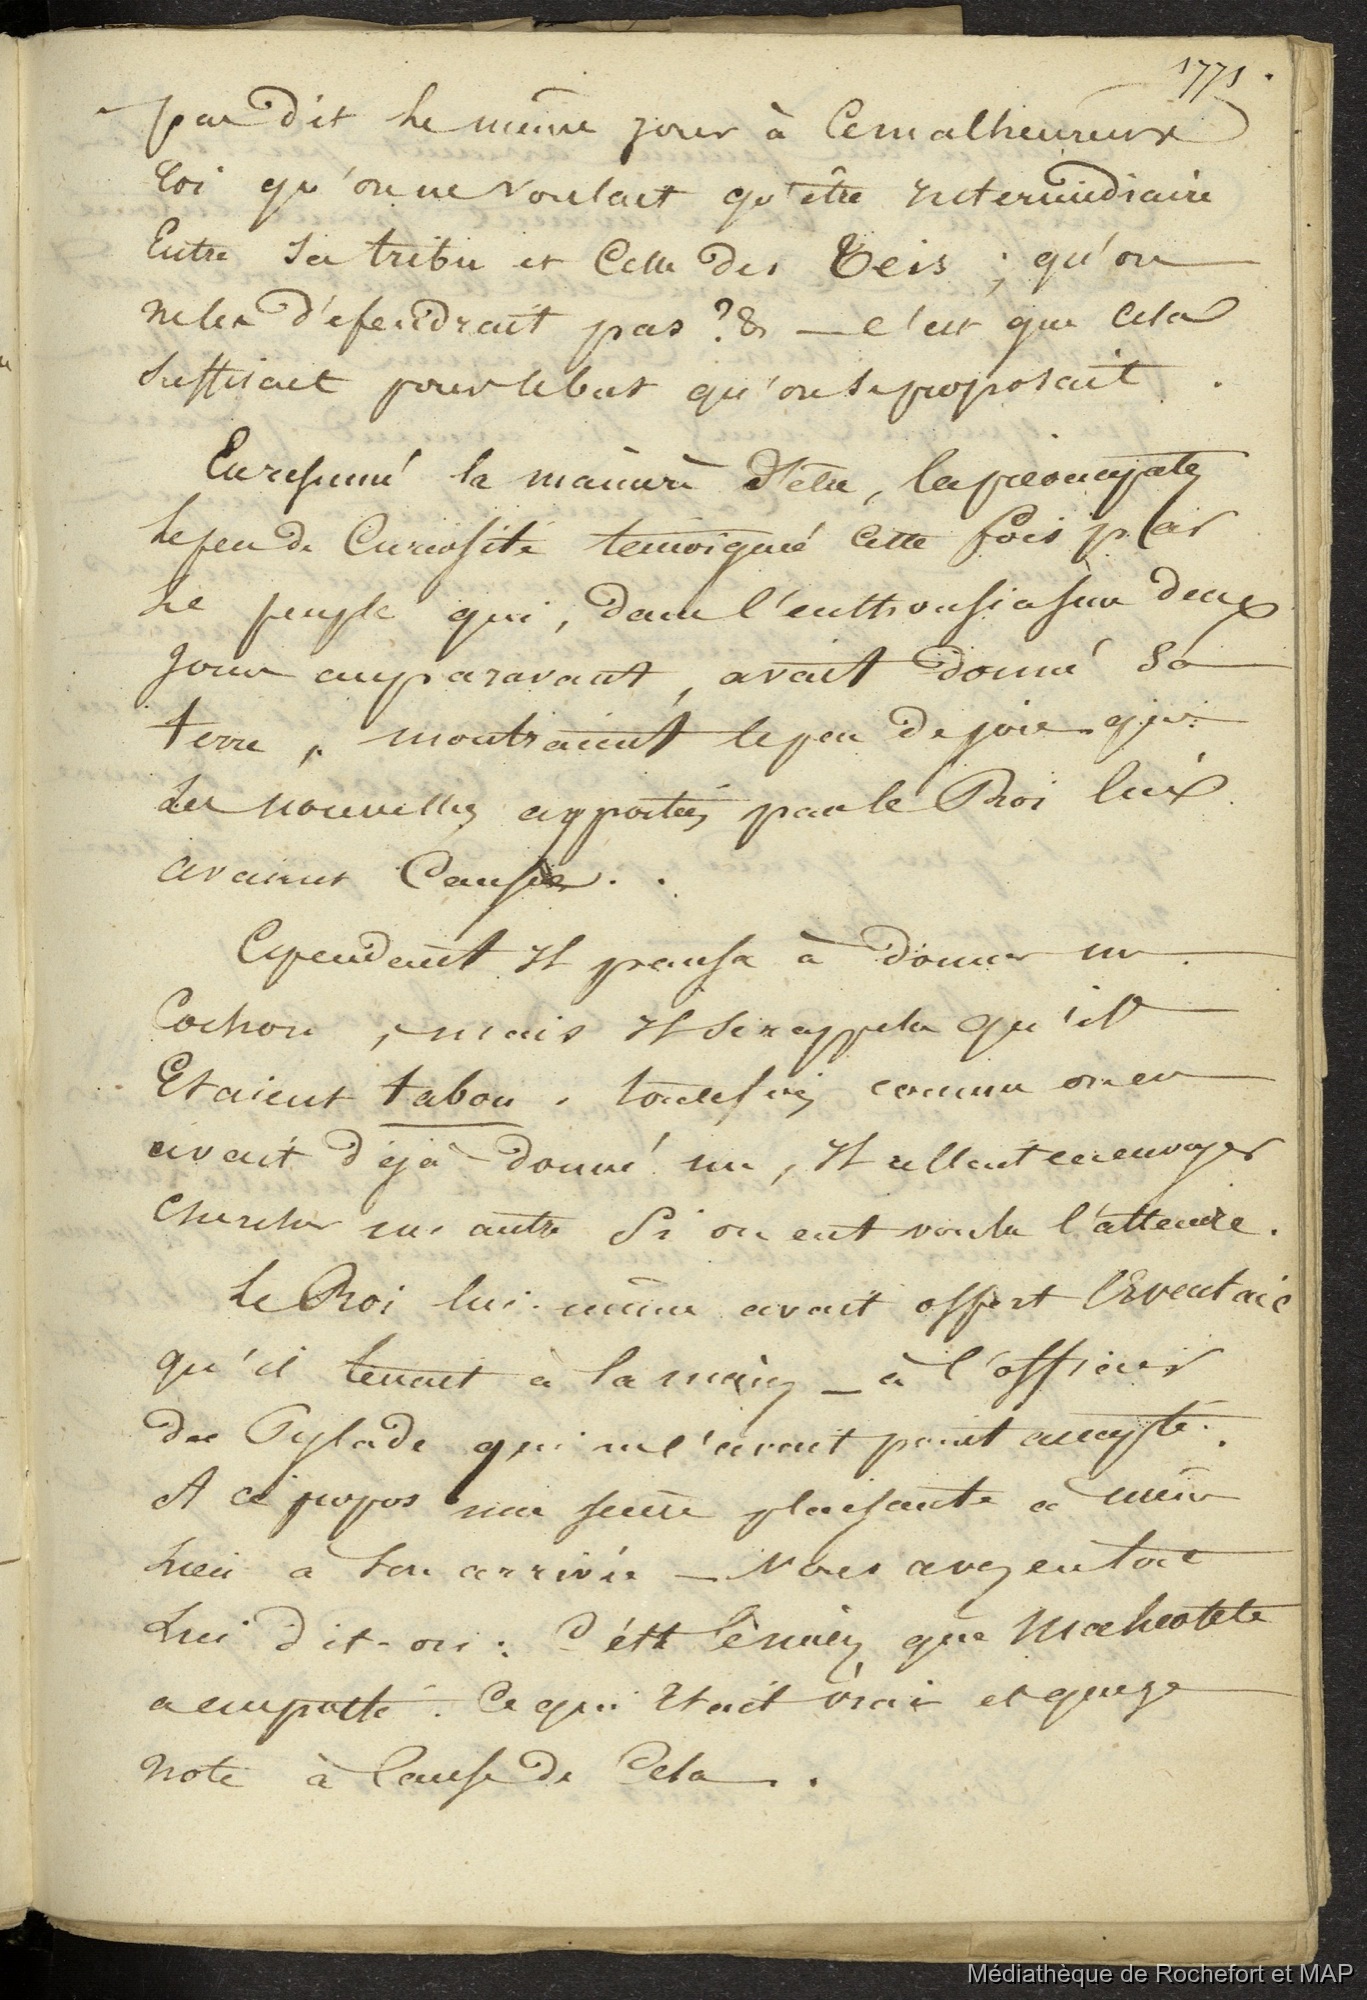 1771.
pas dit le même jour à ce malheureux
Roi qu'on ne voulait qu'être intermédiaire
Entre sa tribu et Celle des Teis ; qu'on
ne les défendrait pas ? & — c'est que cela
suffisait pour le but qu'on se proposait.
En resumé la manière d'être, les
le peu de Curiosité temoigné cette fois par
le peuple qui, dans l'enthousiasme deux
jours auparavant, avait donné sa
terre, montraient le peu de joie que
les nouvelles apportées par le Roi lui
avaient Causée..
Cependant Il pensa à donner un
Cochon, mais Il se rappela qu'ils
Etaient tabou. toutefois comme on en
avait déjà donné un, Il allait en envoyer
chercher un autre Si on eut voulu l'attendre.
Le Roi lui-même avait offert l'Eventail
qu'il tenait à la main — à l'officier
du Pylade qui ne l'avait point accepté.
A ce propos une scène plaisante a
lieu à son arrivée — Vous avez en
lui dit-on : C'est que
a emporté. Ce qui Etait vrai et que je
note à Cause de Cela..
Médiathèque de Rochefort et MAP